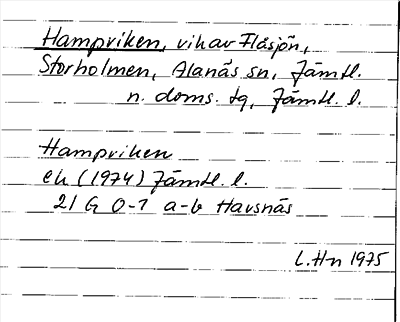 Hampviken, vik av Flåsjön,
Storholmen, Alanäs sn, Jämtl.
n. doms. tg, Jämtl. l.
Hampviken
ek (1974) Jämtl. l.
21 G 0-1 a-b Havsnäs
L.Hn 1975